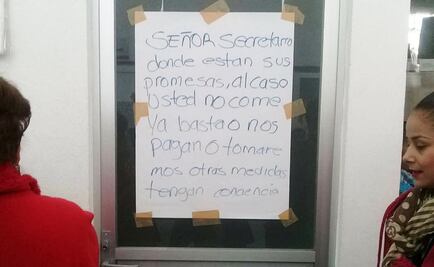 SEÑOR Secretario
donde estan sus
promesas, alcaso
usted no come
ya basta o nos
pagan o tomare
mos otras medidas
tengan conciencia